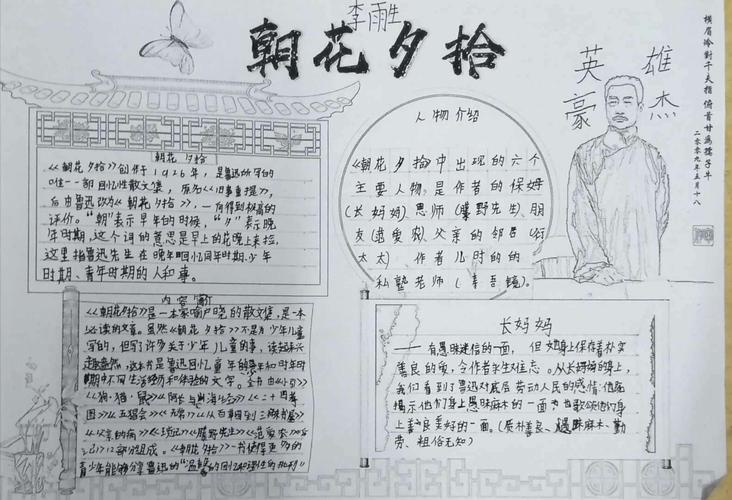 李雨胜
朝花夕拾
英雄
豪杰
横眉冷对千夫指 俯首甘为孺子牛
二〇〇九年五月十八
朝花 夕拾
《朝花 夕拾》创作于1926年，是鲁迅所写的
唯一一部回忆性散文集，原名《旧事重提》，
后由鲁迅改为《朝花夕拾》，一向得到极高的
评价。"朝"表示早年的时候，"夕"表示晚
年时期，这个词的意思是早上的花晚上来捡，
这里指鲁迅先生在晚年回忆童年时期、少年
时期、青年时期的人和事。
人物介绍
《朝花夕拾》中出现的六个
主要人物，是作者的保姆
(长妈妈)恩师(藤野先生)、朋
友(范爱农)、父亲的邻居(衍
太太)、作者儿时的的
私塾老师(寿吾镜)。
内容简介
《朝花夕拾》是一本家喻户晓的散文集，是一本
必读的文章。虽然《朝花夕拾》不是为少年儿童
写的，但写了许多关于少年儿童的事，读起来兴
趣盎然，这本书是鲁迅回忆童年的
期中不同生活经历和体验的文学。全书由《小引》
《狗·猫·鼠》《阿长与山海经》《二十四孝
图》《五猖会》《无常》《从百草园到三味书屋》
《父亲的病》《琐记》《藤野先生》《范爱农》
12部分组成。《朝花夕拾》一书使得更多的
青少年能够分享鲁迅的"温馨的回忆和理性的批判"
长妈妈
——有愚昧迷信的一面，但她身上保存着朴实
善良的爱，令作者永生难忘。从长妈妈的身上，
我们看到了鲁迅对底层劳动人民的感情：他既
揭示他们身上愚昧麻木的一面，也歌颂他们身
上善良美好的一面。(质朴善良、愚昧麻木、勤
劳、粗俗无知)